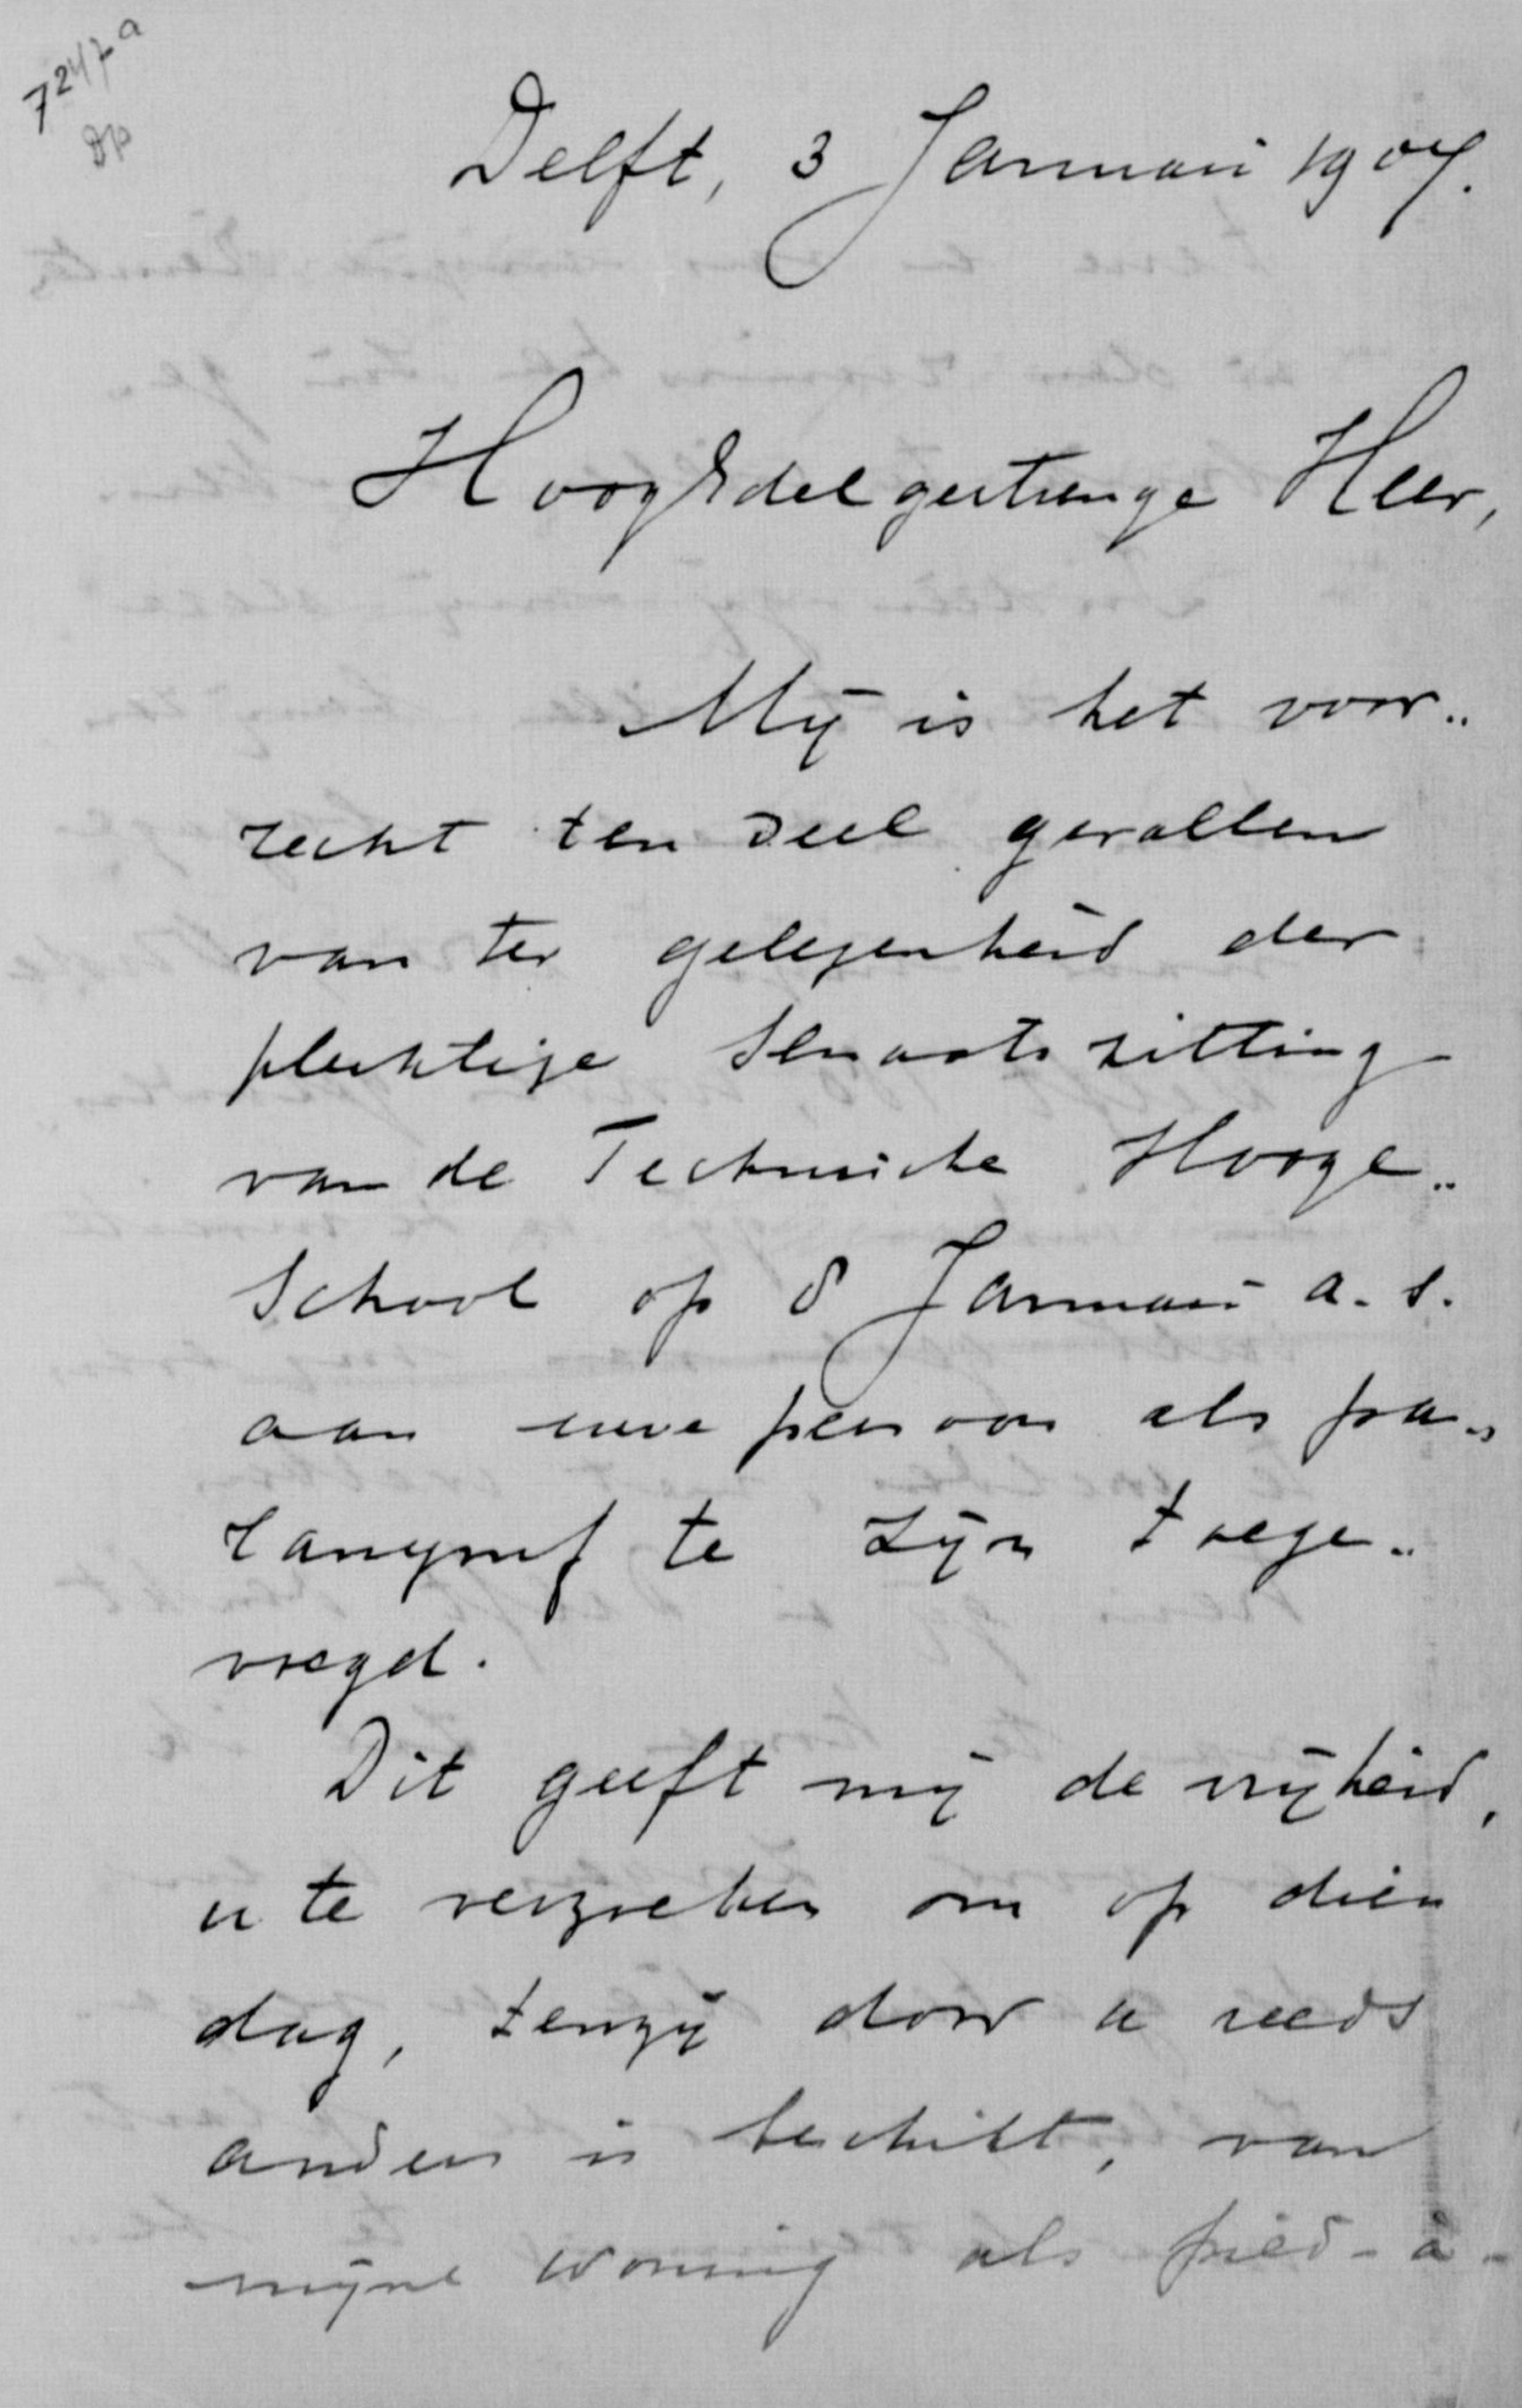 7247a
Delft, 3 Januari 1907.
HoogEdelgestrenge Heer,
Mij is het voor„
recht ten deel gevallen
van ter gelegenheid der
plechtige Senaatszitting
van de Technische Hooge„
School op 8 Januari a.s.
aan uwe persoon als pa„
ranymf te zijn toege„
voegd.
Dit geeft mij de vrijheid,
u te verzoeken om op dien
dag, tenzij door u reeds
anders is beschikt, van
mijne woning als pied-à-